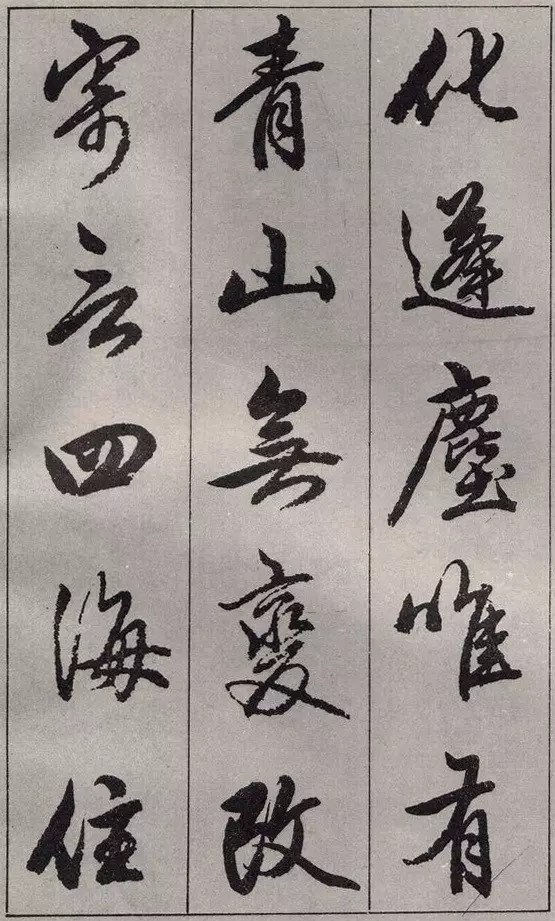 化蓬塵唯有
青山無變改
寄言四海住